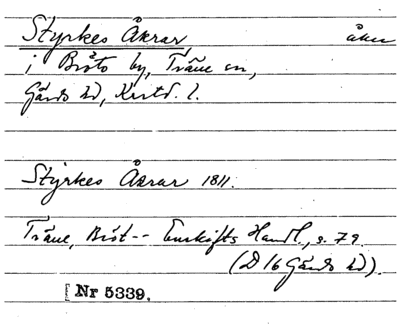 Styrkes Åkrar, åker
i Bröto by, Träne sn,
Gärds hd, Krist. l.
Styrkes Åkrar 1811.
Träne, Bröt-- Enskifts Handl., s. 79.
(D 16 Gärds hd).
Nr 5339.